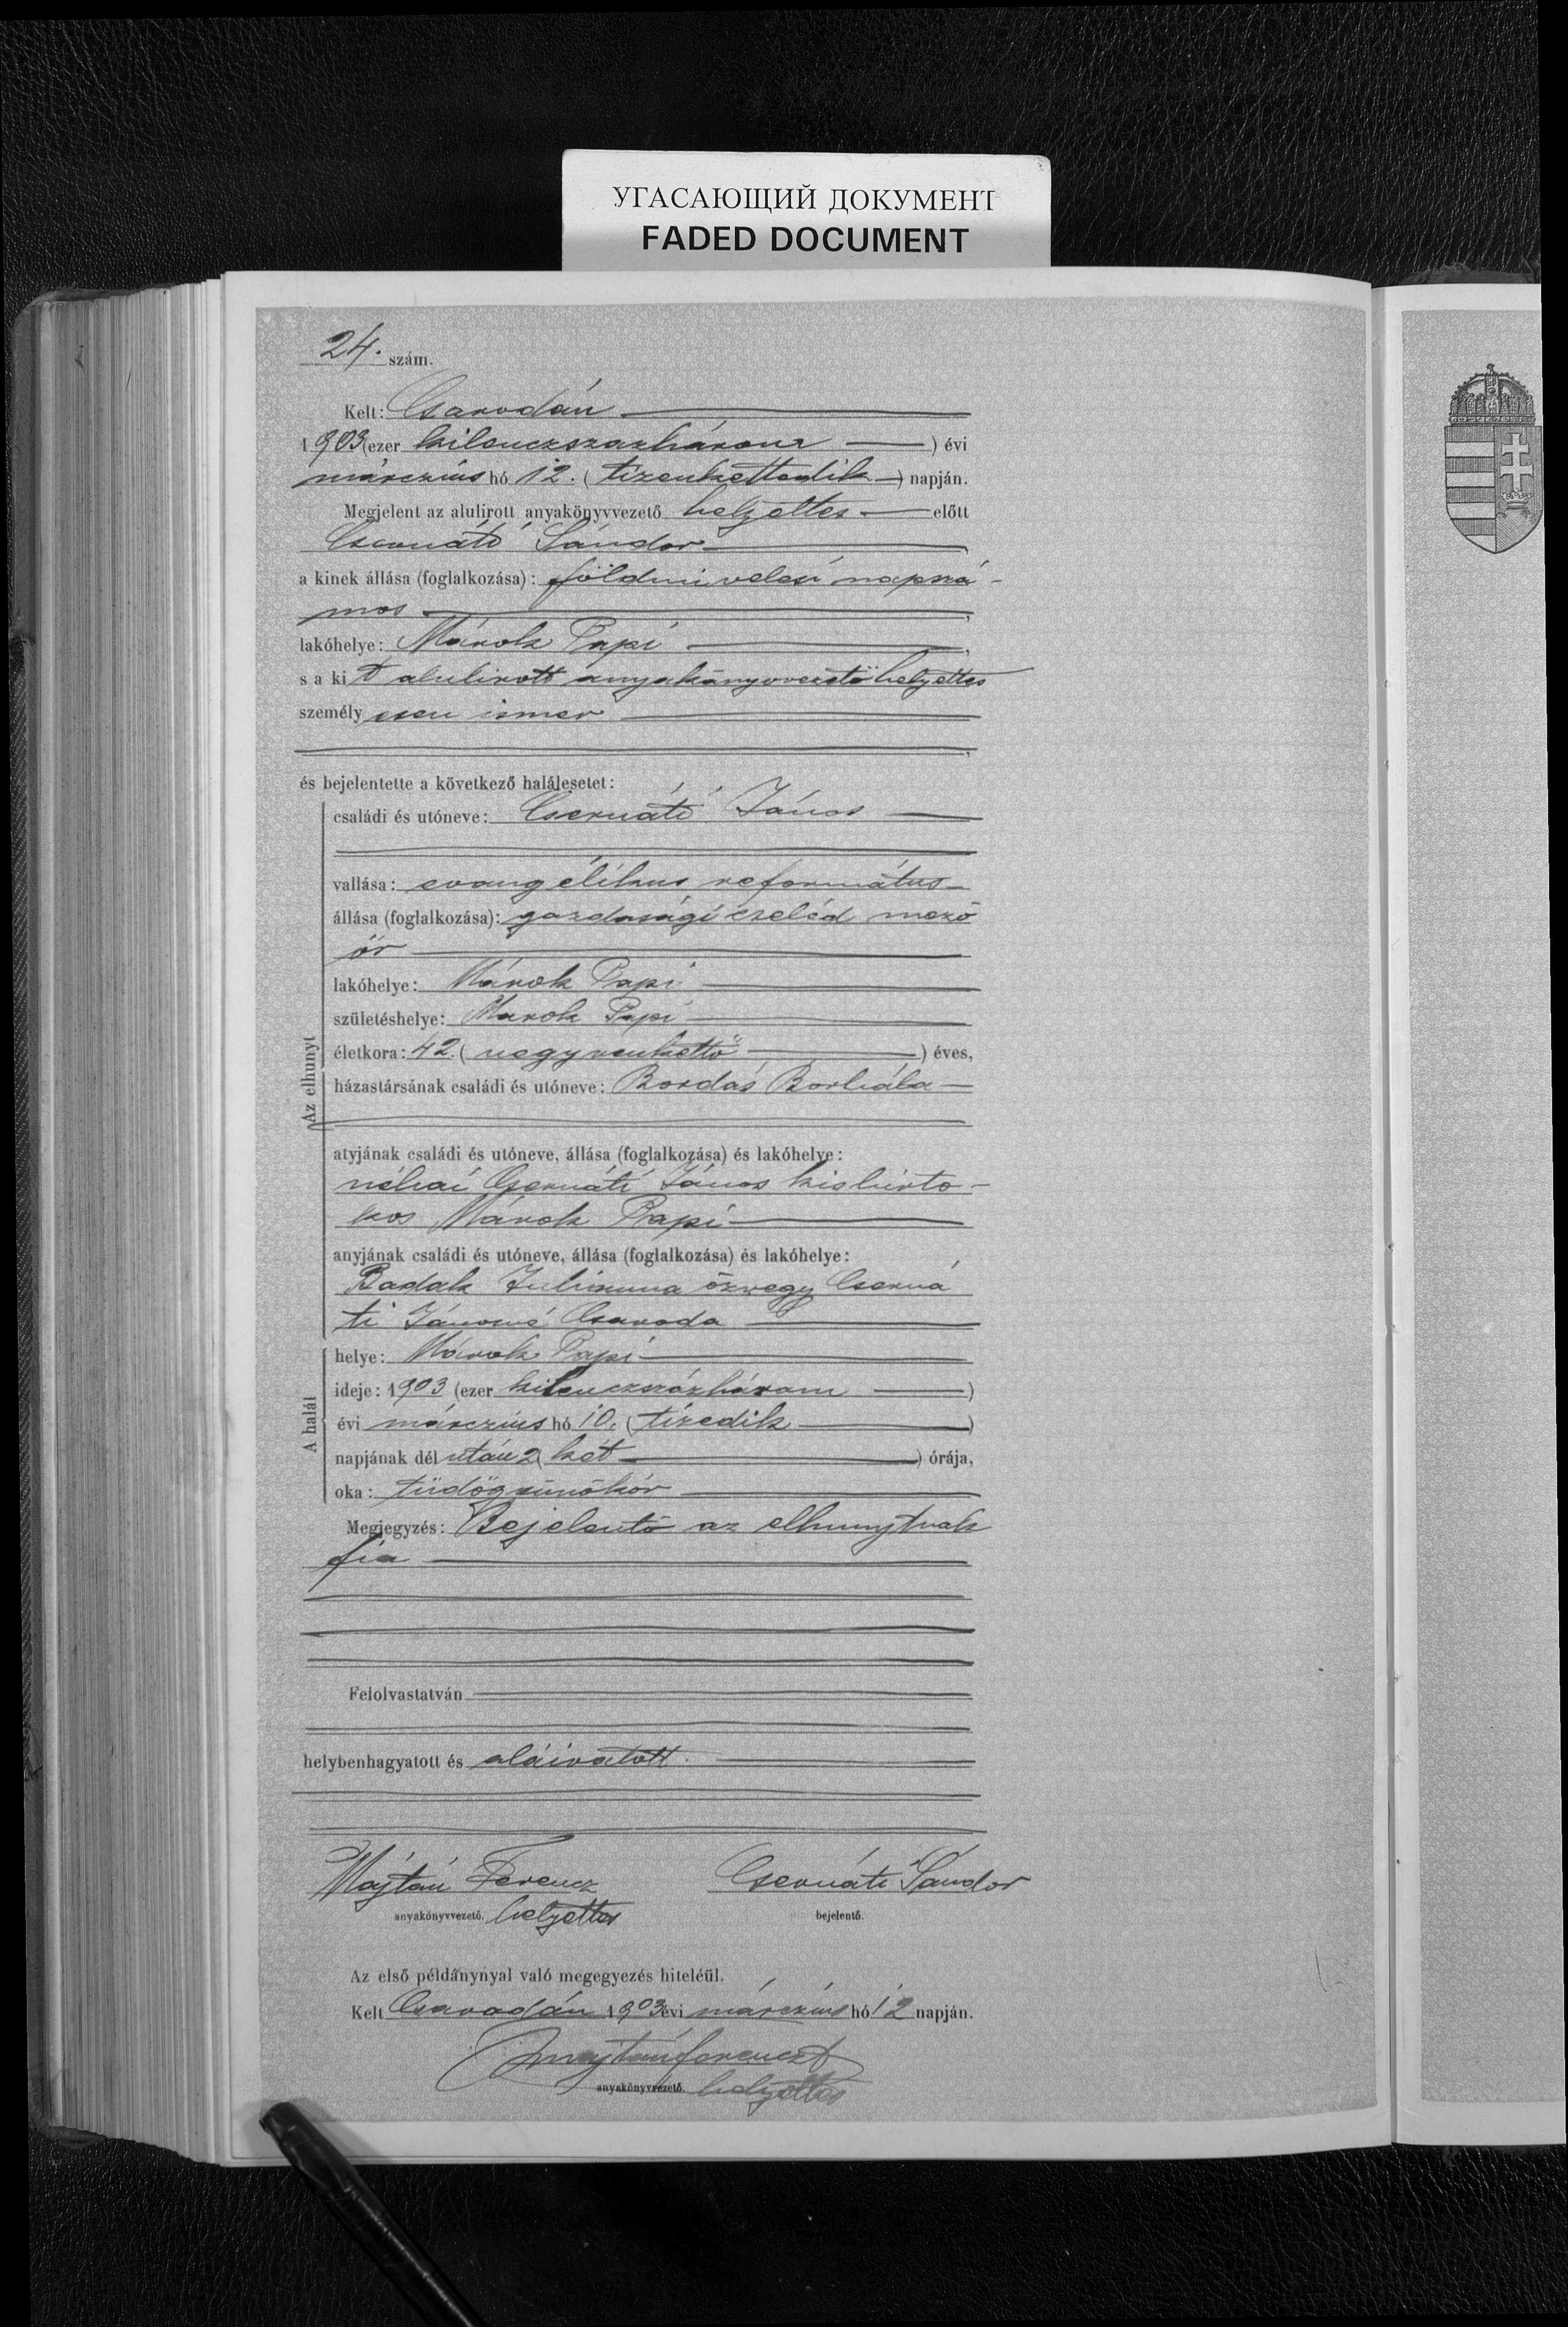 УГАСАЮЩИЙ ДОКУМЕНТ
FADED DOCUMENT
24. szám.
Kelt: Csarodán
1903 (ezer kilenczszazhárom) évi
márczius hó 12. (tizenkettedik) napján.
Megjelent az alulirott anyakönyvvezető helyettes előtt
Csernáti Sándor,
a kinek állása (foglalkozása): földmivelesi napszá-
mos,
lakóhelye: Márok Papi,
s a kit alulirott anyakönyvvezető helyettes
személyesen ismer,
és bejelentette a következő halálesetet:
Az elhunyt
családi és utóneve: Csernáti János
vallása: evangélikus református
állása (foglalkozása): gazdasági cseléd mező
őr
lakóhelye: Márok Papi
születéshelye: Marok Papi
életkora: 42. (negyvenkettő) éves,
házastársának családi és utóneve: Bordás Borbála
atyjának családi és utóneve, állása (foglalkozása) és lakóhelye:
néhai Csernáti János kisbirto-
kos Márok Papi
anyjának családi és utóneve, állása (foglalkozása) és lakóhelye:
Badak Julianna özvegy Cserná
ti Jánosné Csaroda
A halál
helye: Márok Papi
ideje: 1903 (ezer kilenczszázhárom)
évi márczius hó 10. (tizedik)
napjának dél után 2 (két) órája,
oka: tüdőgümőkór
Megjegyzés: Bejelentő az elhunytnak
fia
Felolvastatván
helybenhagyatott és aláiratott.
Majtán Ferencz Csernáti Sándor
anyakönyvvezető. helyettes bejelentő.
Az első példánynyal való megegyezés hiteléül.
Kelt Csarodán 1903 évi márczius hó 12 napján.
Majtán Ferencz
anyakönyvvezető. helyettes